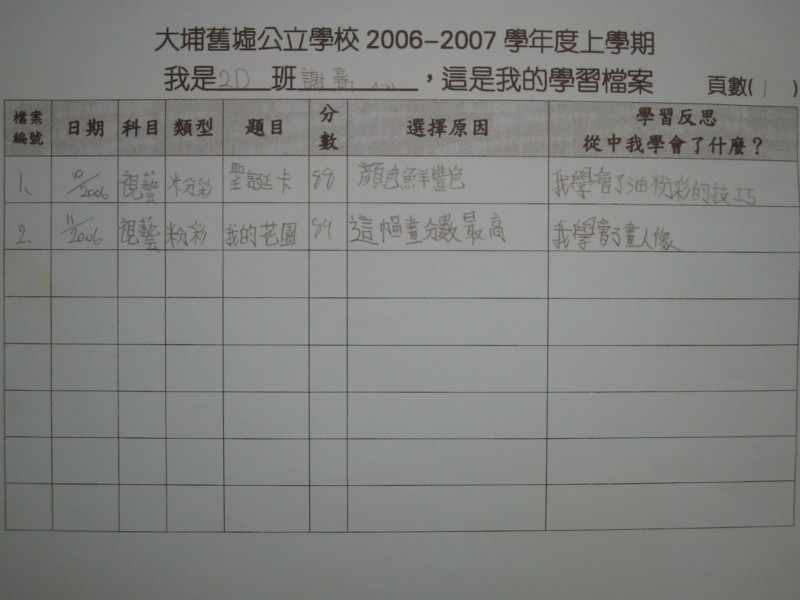 大埔舊墟公立學校 2006-2007 學年度上學期
我是2D班謝，這是我的學習檔案 頁數(1)
檔案編號 日期 科目 類型 題目 分數 選擇原因 學習反思 從中我學會了什麼？
1、 10/2006 視藝 粉彩 聖誕卡 88 顏色鮮豐色 我學會了油粉彩的技巧
2、 11/2006 視藝 粉彩 我的花園 89 這幅畫分數最高 我學會了畫人像